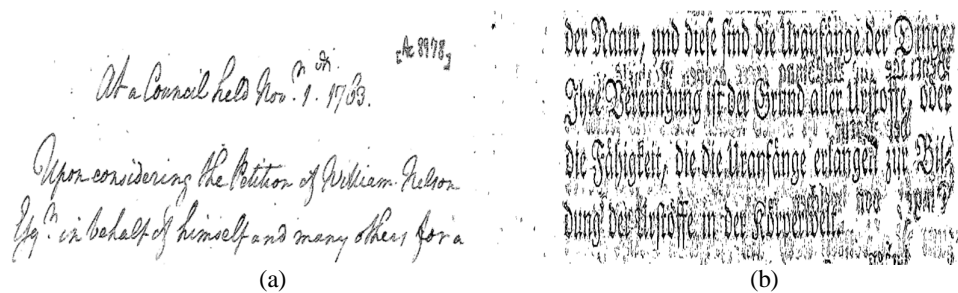 [Ac 8978]
At a Council held Nov.r 1.st 1763.
Upon considering the Petition of William Nelson
Esq.r in behalf of himself and many others for a
(a)
der Natur, und diese sind die Uranfänge der Dinge.
Ihre Vereinigung ist der Grund aller Urstoffe, oder
die Fähigkeit, die die Uranfänge erlangen zur Bil-
dung der Urstoffe in der Körperwelt.
(b)